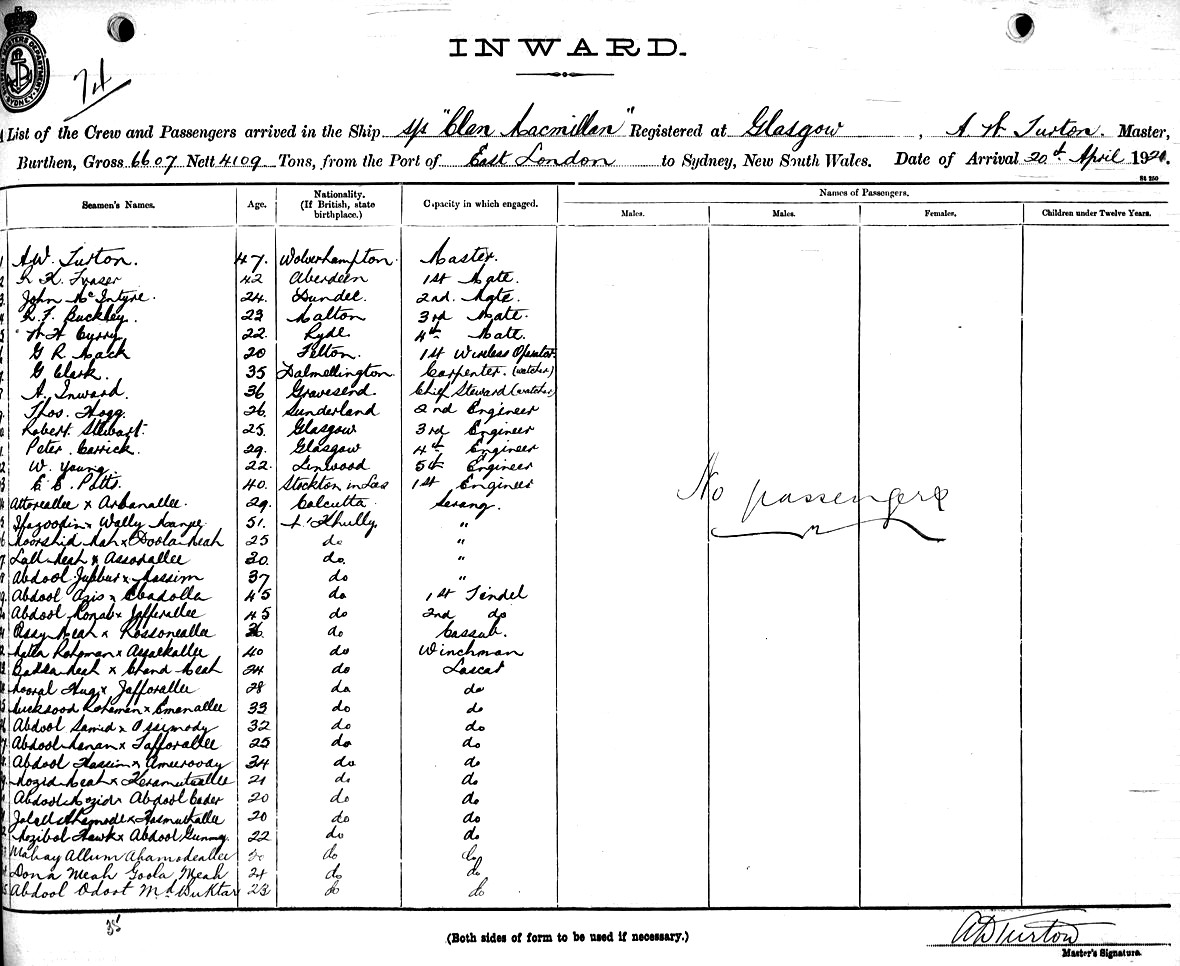 74
INWARD.
List of the Crew and Passengers arrived in the Ship s/s "Clan Macmillan" Registered at Glasgow, A. W. Turton. Master,
Burthen, Gross 6607 Nett 4109 Tons, from the Port of East London to Sydney, New South Wales. Date of Arrival 20th April 1921.
St 250
Seamen's Names. Age. Nationality. (If British, state birthplace.) Capacity in which engaged. Names of Passengers.
Males. Males. Females. Children under Twelve Years.
A.W. Turton. 47. Wolverhampton. Master.
R. K. Fraser 42 Aberdeen 1st Mate.
John McIntyre. 24. Dundee. 2nd. Mate.
R. F. Buckley. 23 Malton 3rd Mate.
W. H. Curry 22. Ryde 4th Mate.
G R Mack 20 Felton. 1st Wireless Operator
G Clark. 35 Dalmellington Carpenter. (watcher)
A. Inward. 36 Gravesend. Chief Steward (watcher)
Thos. Hogg. 26. Sunderland 2nd Engineer
Robert Stewart. 25. Glasgow 3rd Engineer
Peter Carrick. 29. Glasgow 4th Engineer
W. Young. 22. Linwood 5th Engineer
E. E. Potts. 40. Stockton in Lees 1st Engineer
Attoreallee x Arbanallee. 29. Calcutta Serang.
x Wally 51. Khully "
x Doola Meah 25 do "
Lall Meah x Assorallee 30. do. "
Abdool Jubbur x Massim 37 do "
Abdool Azis x Ebadolla 45 do 1st Tindel
Abdool x Jafferallee 45 do 2nd do
Ossy Meah x Rossoneallee 36. do Cassab.
Rohoman x 40 do Winchman
Badda Meah x Chand Meah 24 do Lascar
Nooral Huq x Jafforallee 28 do do
Mucksood Rohoman x Emanallee 33 do do
Abdool Samed x Ossimody 32 do do
Abdool Manan x Jafforallee 25 do do
Abdool Hassim x 34 do do
Mozid Meah x 21 do do
Abdool Mozid x Abdool Cader 20 do do
x 20 do do
Mozibol Hawk x Abdool Gunny. 22 do do
Mahay Allum Ahamodeallee 20 do do
Dona Meah Goola Meah 24 do do
Abdool Odoot Md Buktar 23 do do
No passengers
35
(Both sides of form to be used if necessary.)
AWTurton
Master's Signature.